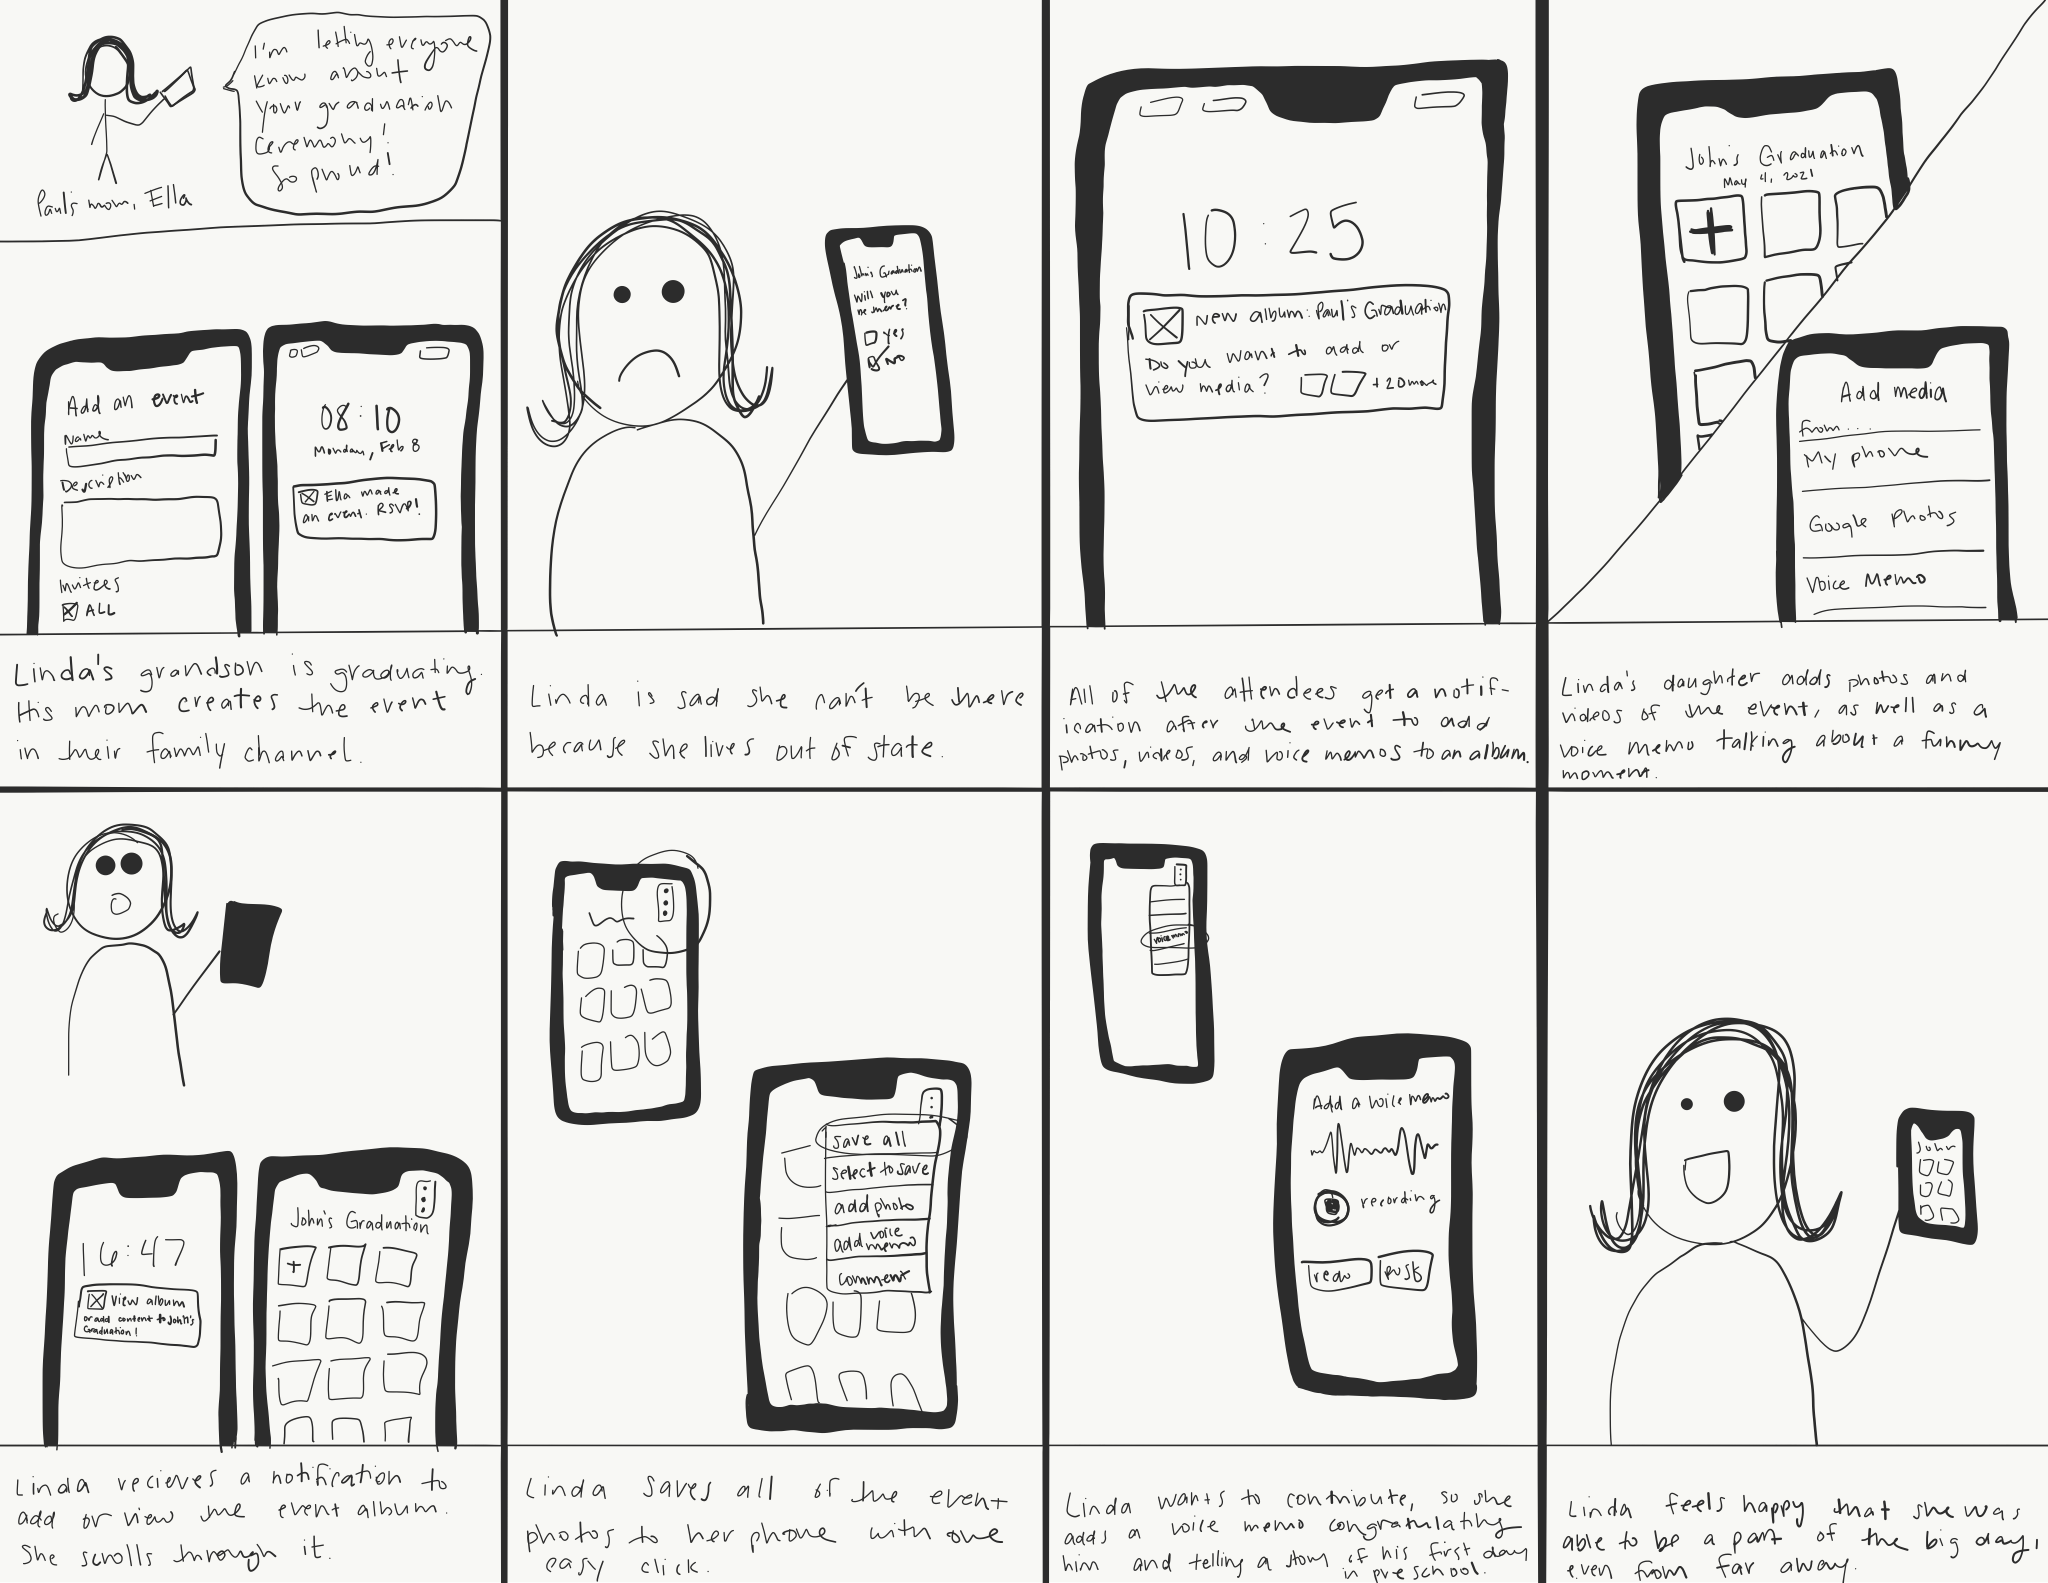 I'm letting everyone
know about
your graduation
ceremony!
So proud!
Paul's mom, Ella
Add an event
Name
Description
Invitees
ALL
08:10
Monday, Feb 8
Ella made
an event. RSVP!
Linda's grandson is graduating.
His mom creates the event
in their family channel.
John's Graduation
Will you
be there?
Yes
No
Linda is sad she can't be there
because she lives out of state.
10:25
New album: Paul's Graduation
Do you want to add or
view media? +20 more
All of the attendees get a notif-
ication after the event to add
photos, videos, and voice memos to an album.
John's Graduation
May 4, 2021
+
Add media
from...
My phone
Google Photos
Voice Memo
Linda's daughter adds photos and
videos of the event, as well as a
voice memo talking about a funny
moment.
16:47
View album
or add content to John's
Graduation!
John's Graduation
+
Linda recieves a notification to
add or view the event album.
She scrolls through it.
save all
select to save
add photo
add voice
memo
comment
Linda saves all of the event
photos to her phone with one
easy click.
voice memo
Add a voice memo
recording
redo
Linda wants to contribute, so she
adds a voice memo congratulating
him and telling a story of his first day
in preschool.
John
Linda feels happy that she was
able to be a part of the big day,
even from far away.